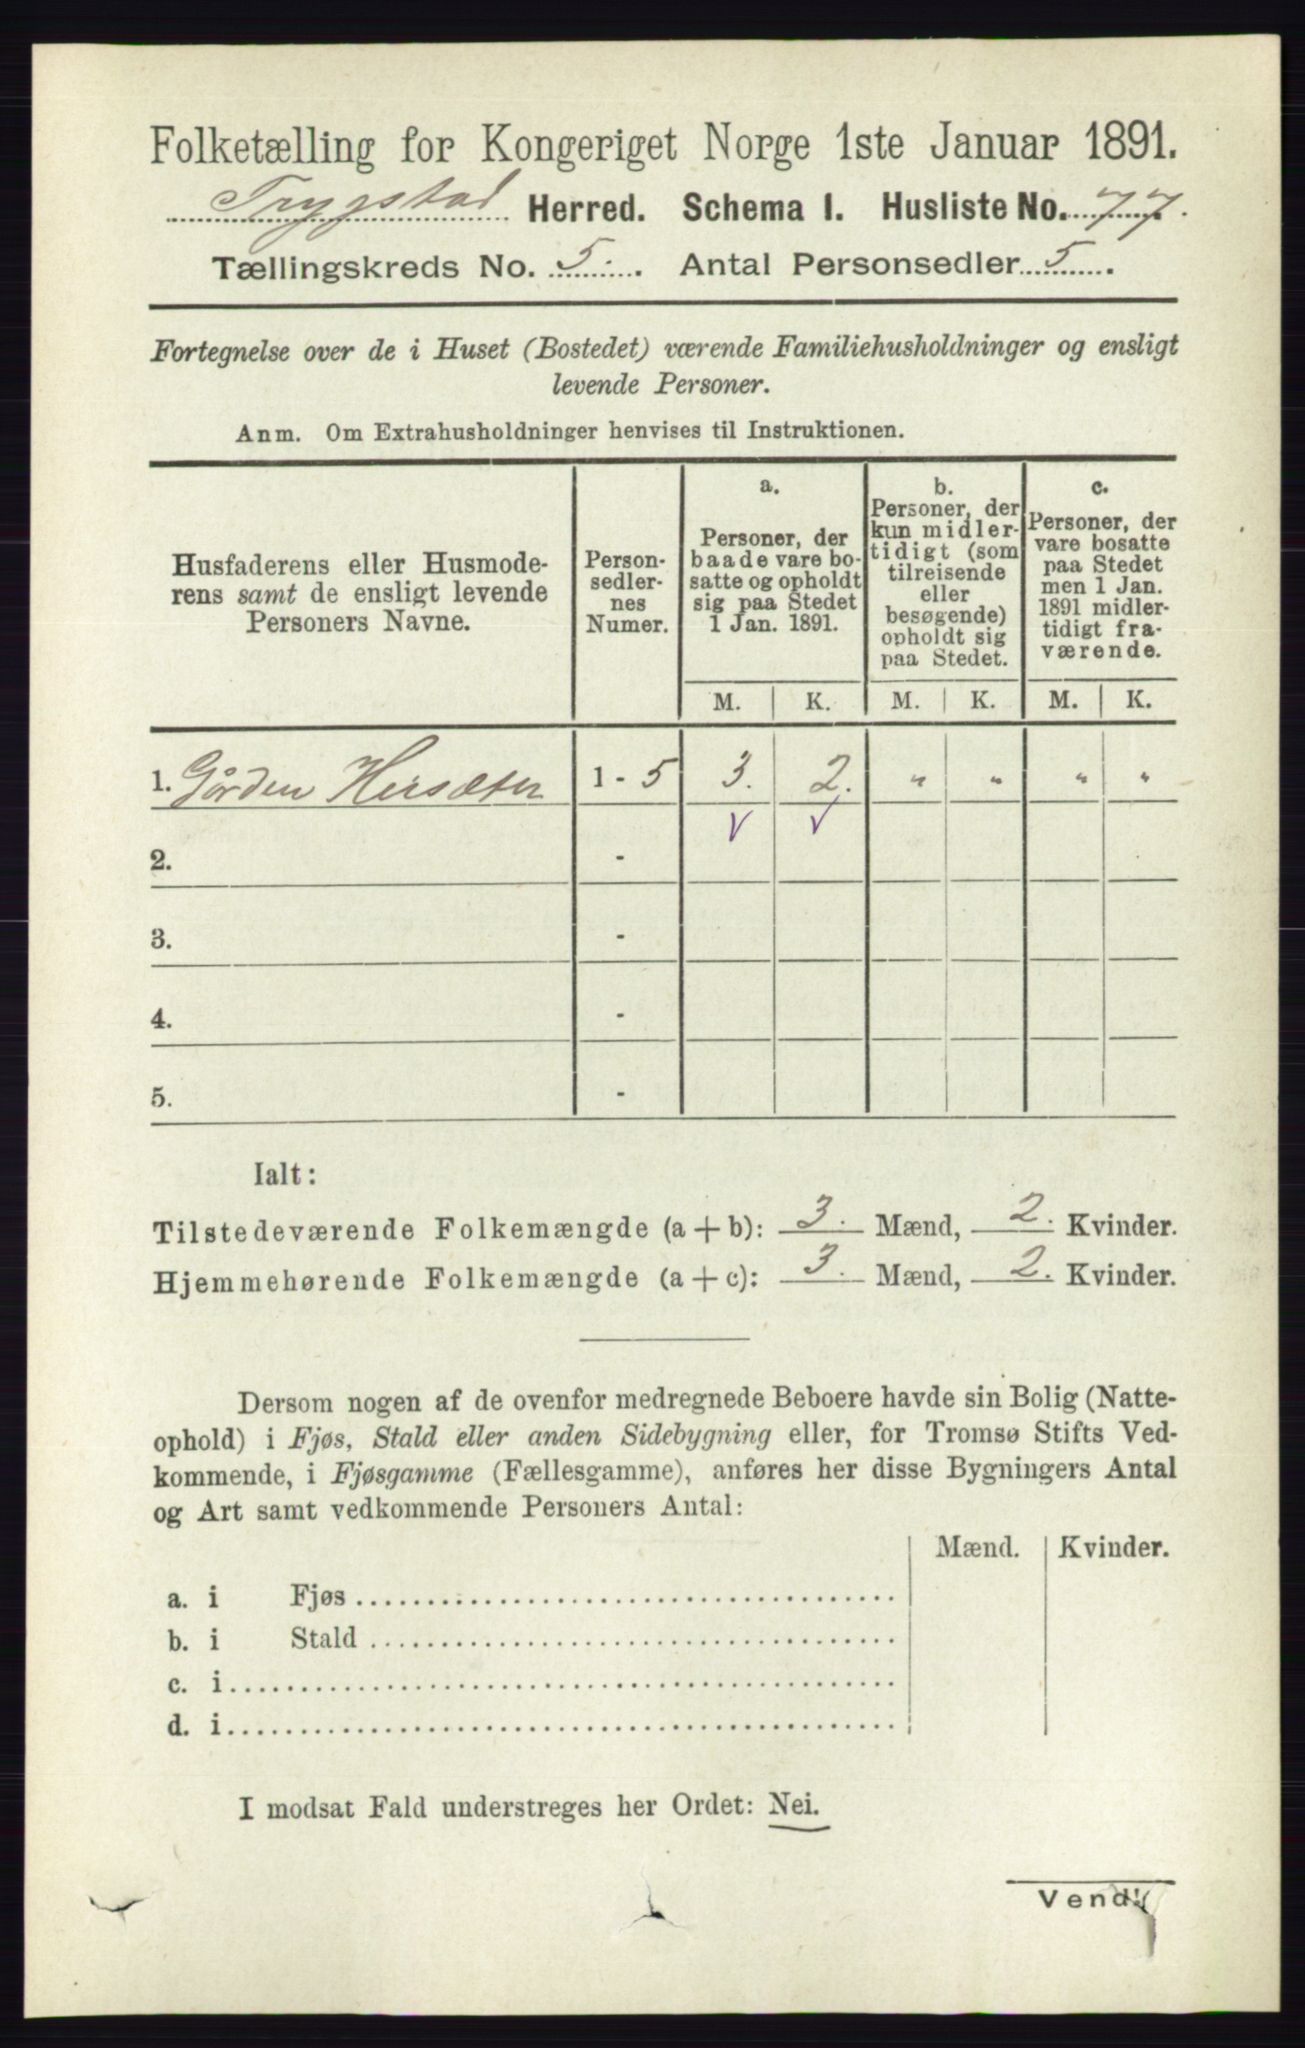 Folketælling for Kongeriget Norge 1ste Januar 1891.
Trygstad Herred. Schema I. Husliste No. 77.
Tællingskreds No. 5. Antal Personsedler 5.
Fortegnelse over de i Huset (Bostedet) værende Familiehusholdninger og ensligt
levende Personer.
Anm. Om Extrahusholdninger henvises til Instruktionen.
Husfaderens eller Husmode-
rens samt de ensligt levende
Personers Navne.
Person-
sedler-
nes
Numer.
a.
Personer, der
baade vare bo-
satte og opholdt
sig paa Stedet
1 Jan. 1891.
b.
Personer, der
kun midler-
tidigt (som
tilreisende
eller
besøgende)
opholdt sig
paa Stedet.
c.
Personer, der
vare bosatte
paa Stedet
men 1 Jan.
1891 midler-
tidigt fra-
værende.
M. K. M. K. M. K.
1. Gården Hersæter 1 - 5 3. 2. " " " "
V V
2. -
3. -
4. -
5. -
Ialt:
Tilstedeværende Folkemængde (a + b): 3. Mænd, 2. Kvinder.
Hjemmehørende Folkemængde (a + c): 3. Mænd, 2. Kvinder.
Dersom nogen af de ovenfor medregnede Beboere havde sin Bolig (Natte-
ophold) i Fjøs, Stald eller anden Sidebygning eller, for Tromsø Stifts Ved-
kommende, i Fjøsgamme (Fællesgamme), anføres her disse Bygningers Antal
og Art samt vedkommende Personers Antal:
Mænd. Kvinder.
a. i Fjøs
b. i Stald
c. i
d. i
I modsat Fald understreges her Ordet: Nei.
Vend!